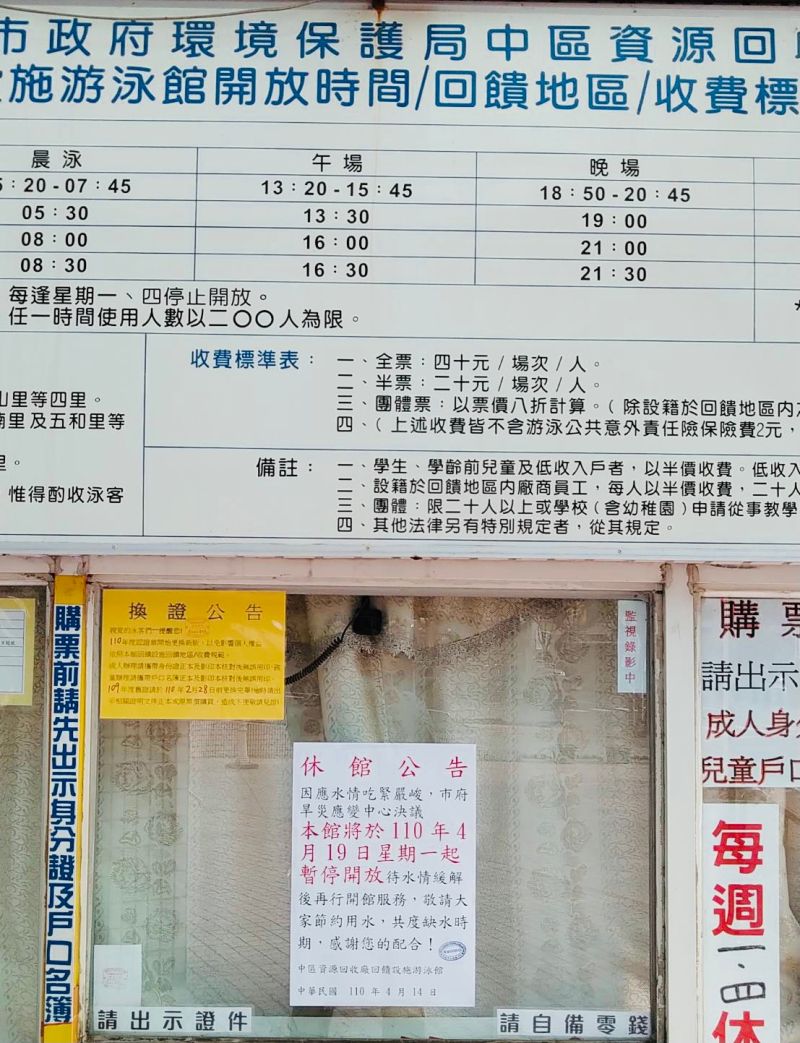 市政府環境保護局中區資源回
施游泳館開放時間/回饋地區/收費標
晨泳
午場
晚場
5:20-07:45
13:20-15:45
18:50-20:45
05:30
13:30
19:00
08:00
16:00
21:00
08:30
16:30
21:30
每逢星期一、四停止開放。
任一時間使用人數以二〇〇人為限。
山里等四里。
里及五和里等
里。
惟得酌收泳客
收費標準表:
一、全票:四十元/場次/人。
二、半票:二十元/場次/人。
三、團體票:以票價八折計算。(除設籍於回饋地區內
四、(上述收費皆不含游泳公共意外責任險保險費2元,
備註:
一、學生、學齡前兒童及低收入戶者,以半價收費。低收入
二、設籍於回饋地區內廠商員工,每人以半價收費,二十人
三、團體:限二十人以上或學校(含幼稚園)申請從事教學
四、其他法律另有特別規定者,從其規定。
購票前請先出示身分證及戶口名簿
換證公告
親愛的泳客們~提醒您!
監視錄影中
休館公告
因應水情吃緊嚴峻,市府
旱災應變中心決議
本館將於 110 年 4
月 19 日星期一起
暫停開放待水情緩解
後再行開館服務,敬請大
家節約用水,共度缺水時
期,感謝您的配合!
中區資源回收廠回饋設施游泳館
中華民國 110 年 4 月 14 日
請出示證件
請自備零錢
購票
請出示
成人身分
兒童戶口
每週一、四休